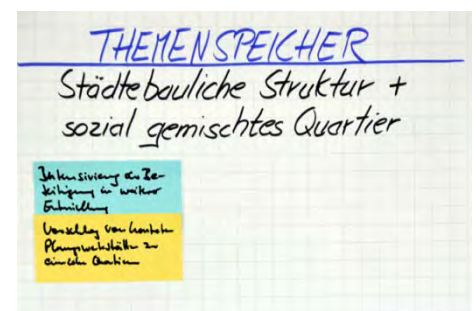 THEMENSPEICHER
Städtebauliche Struktur +
sozial gemischtes Quartier
Intensivierung der Be-
teiligung in weiterer
Entwicklung
Vorschlag von
Planungswerkstätten zu
einzelnen Quartieren